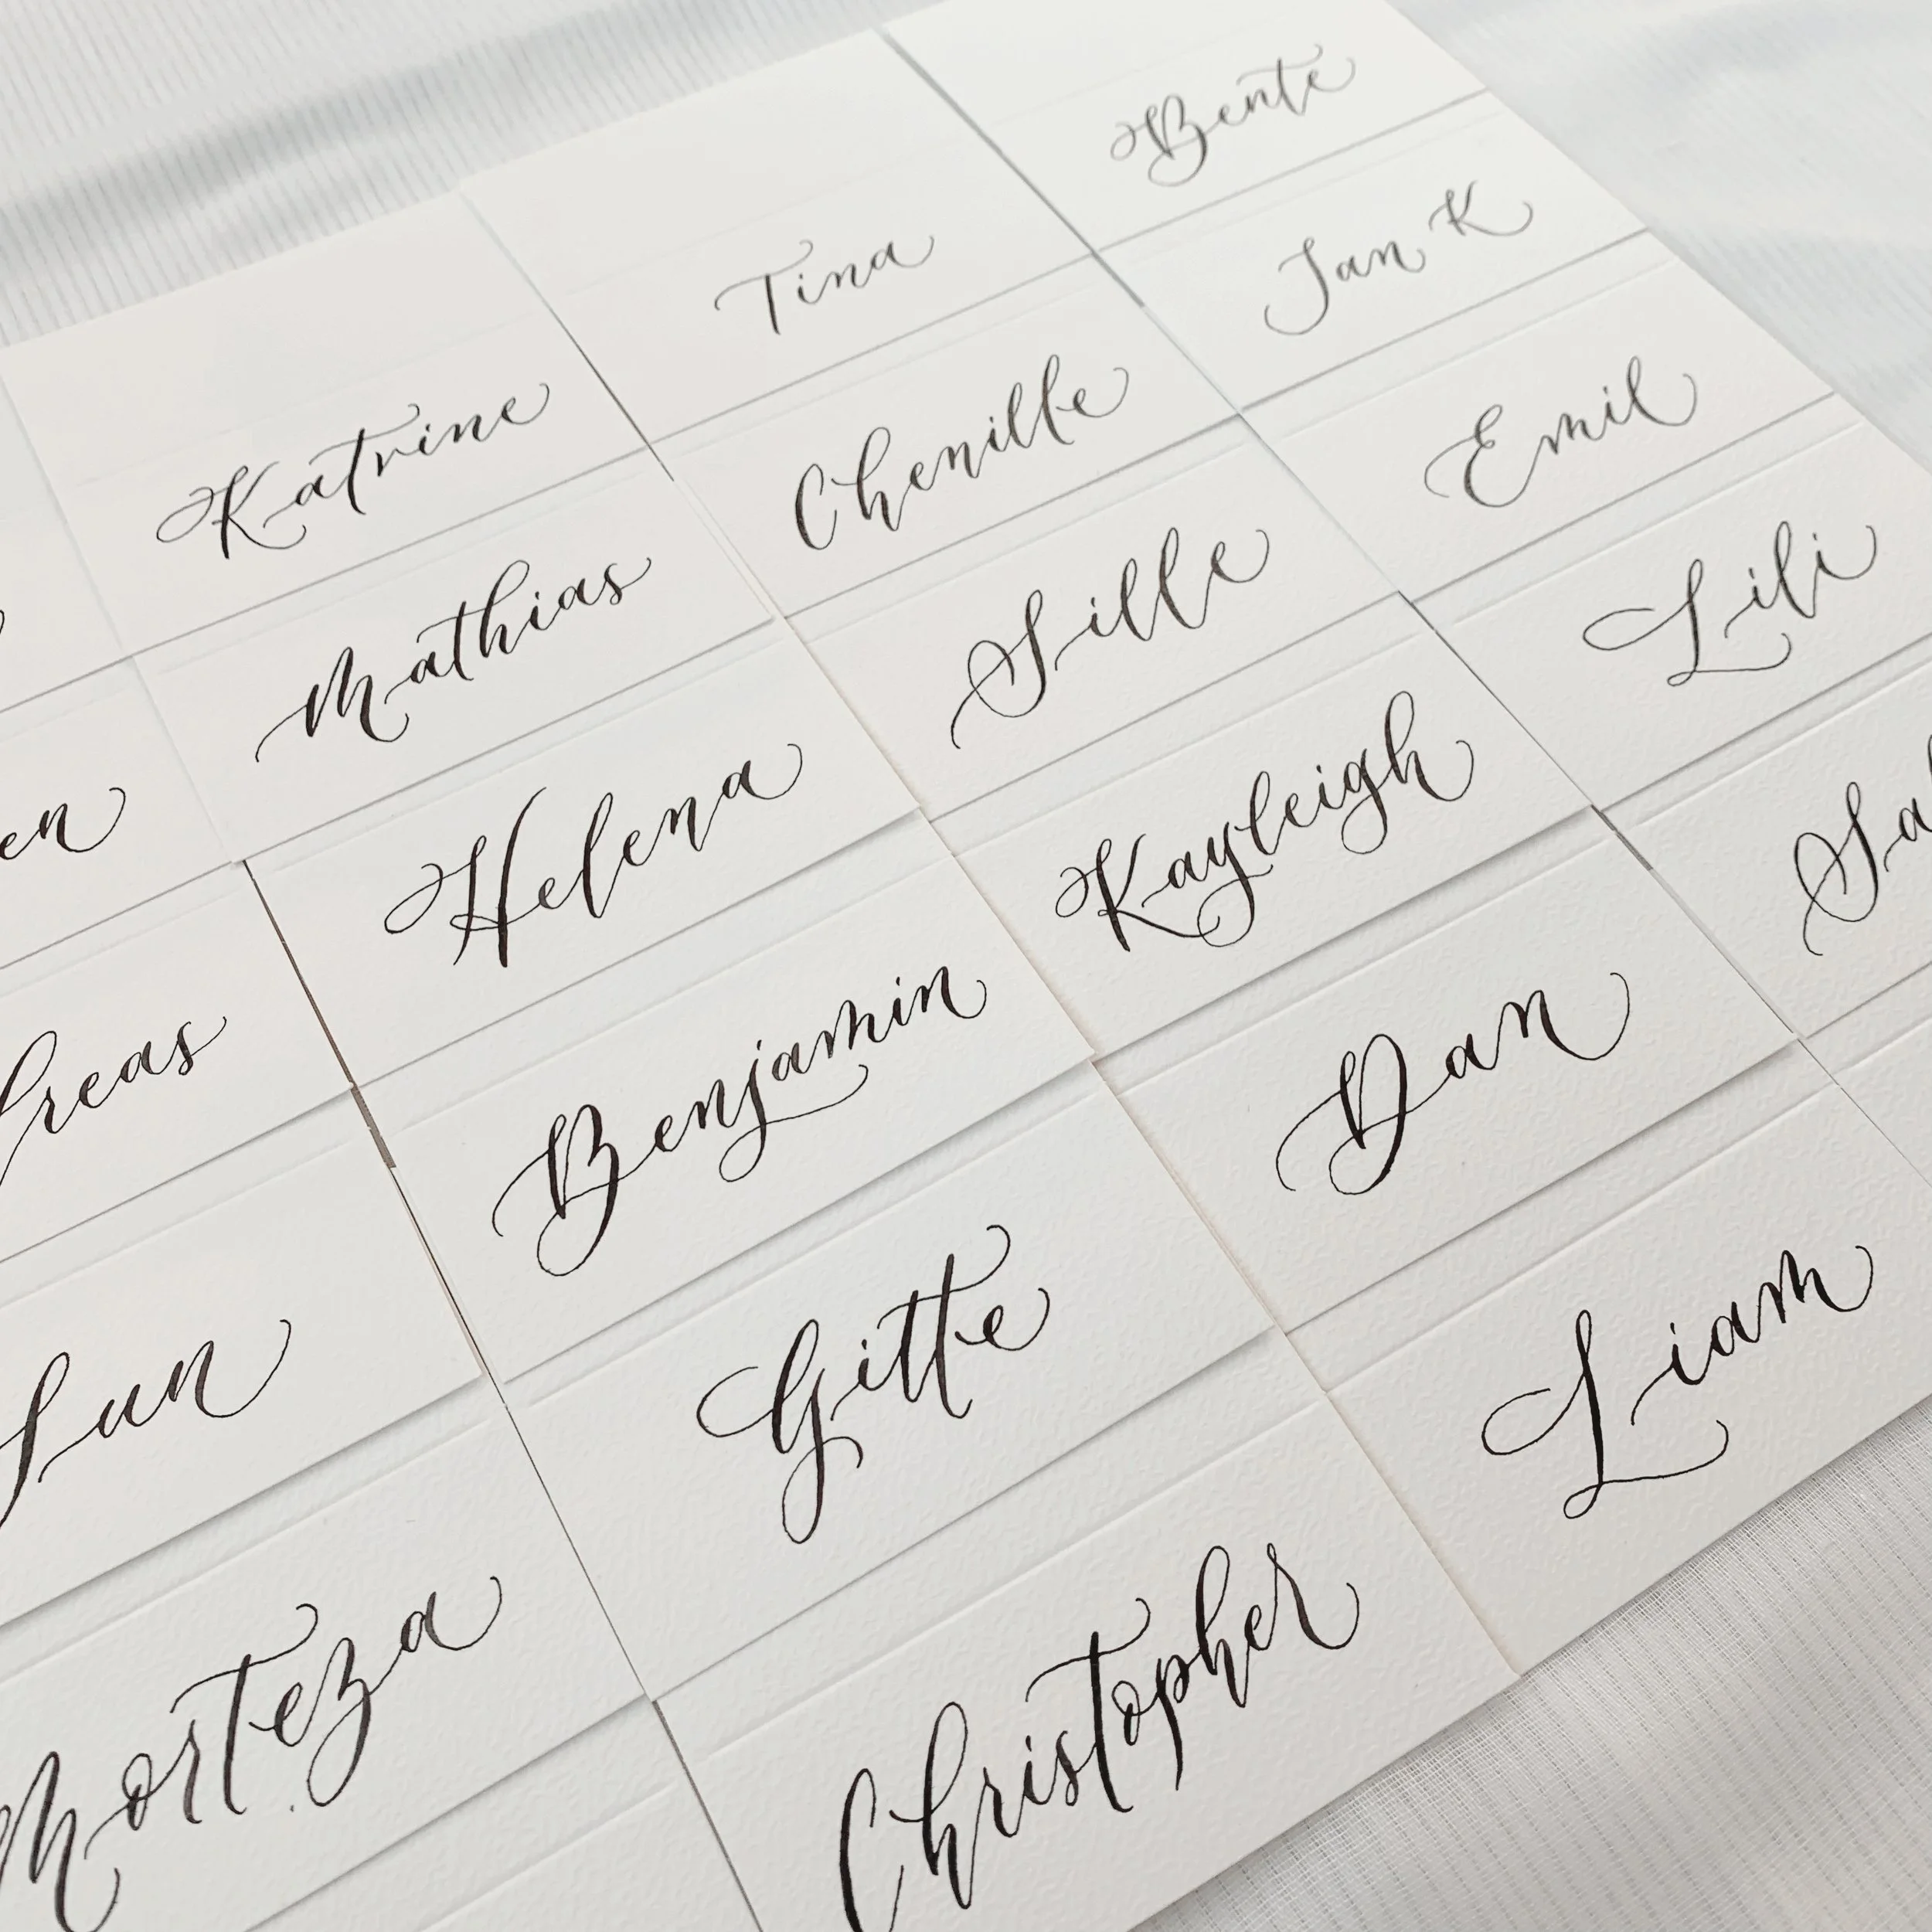 Bente
Tina
Jan K
Katrine
Chenille
Emil
Mathias
Sille
Lili
en
Helena
Kayleigh
Sa
reas
Benjamin
Dan
un
Gitte
Liam
Morteza
Christopher